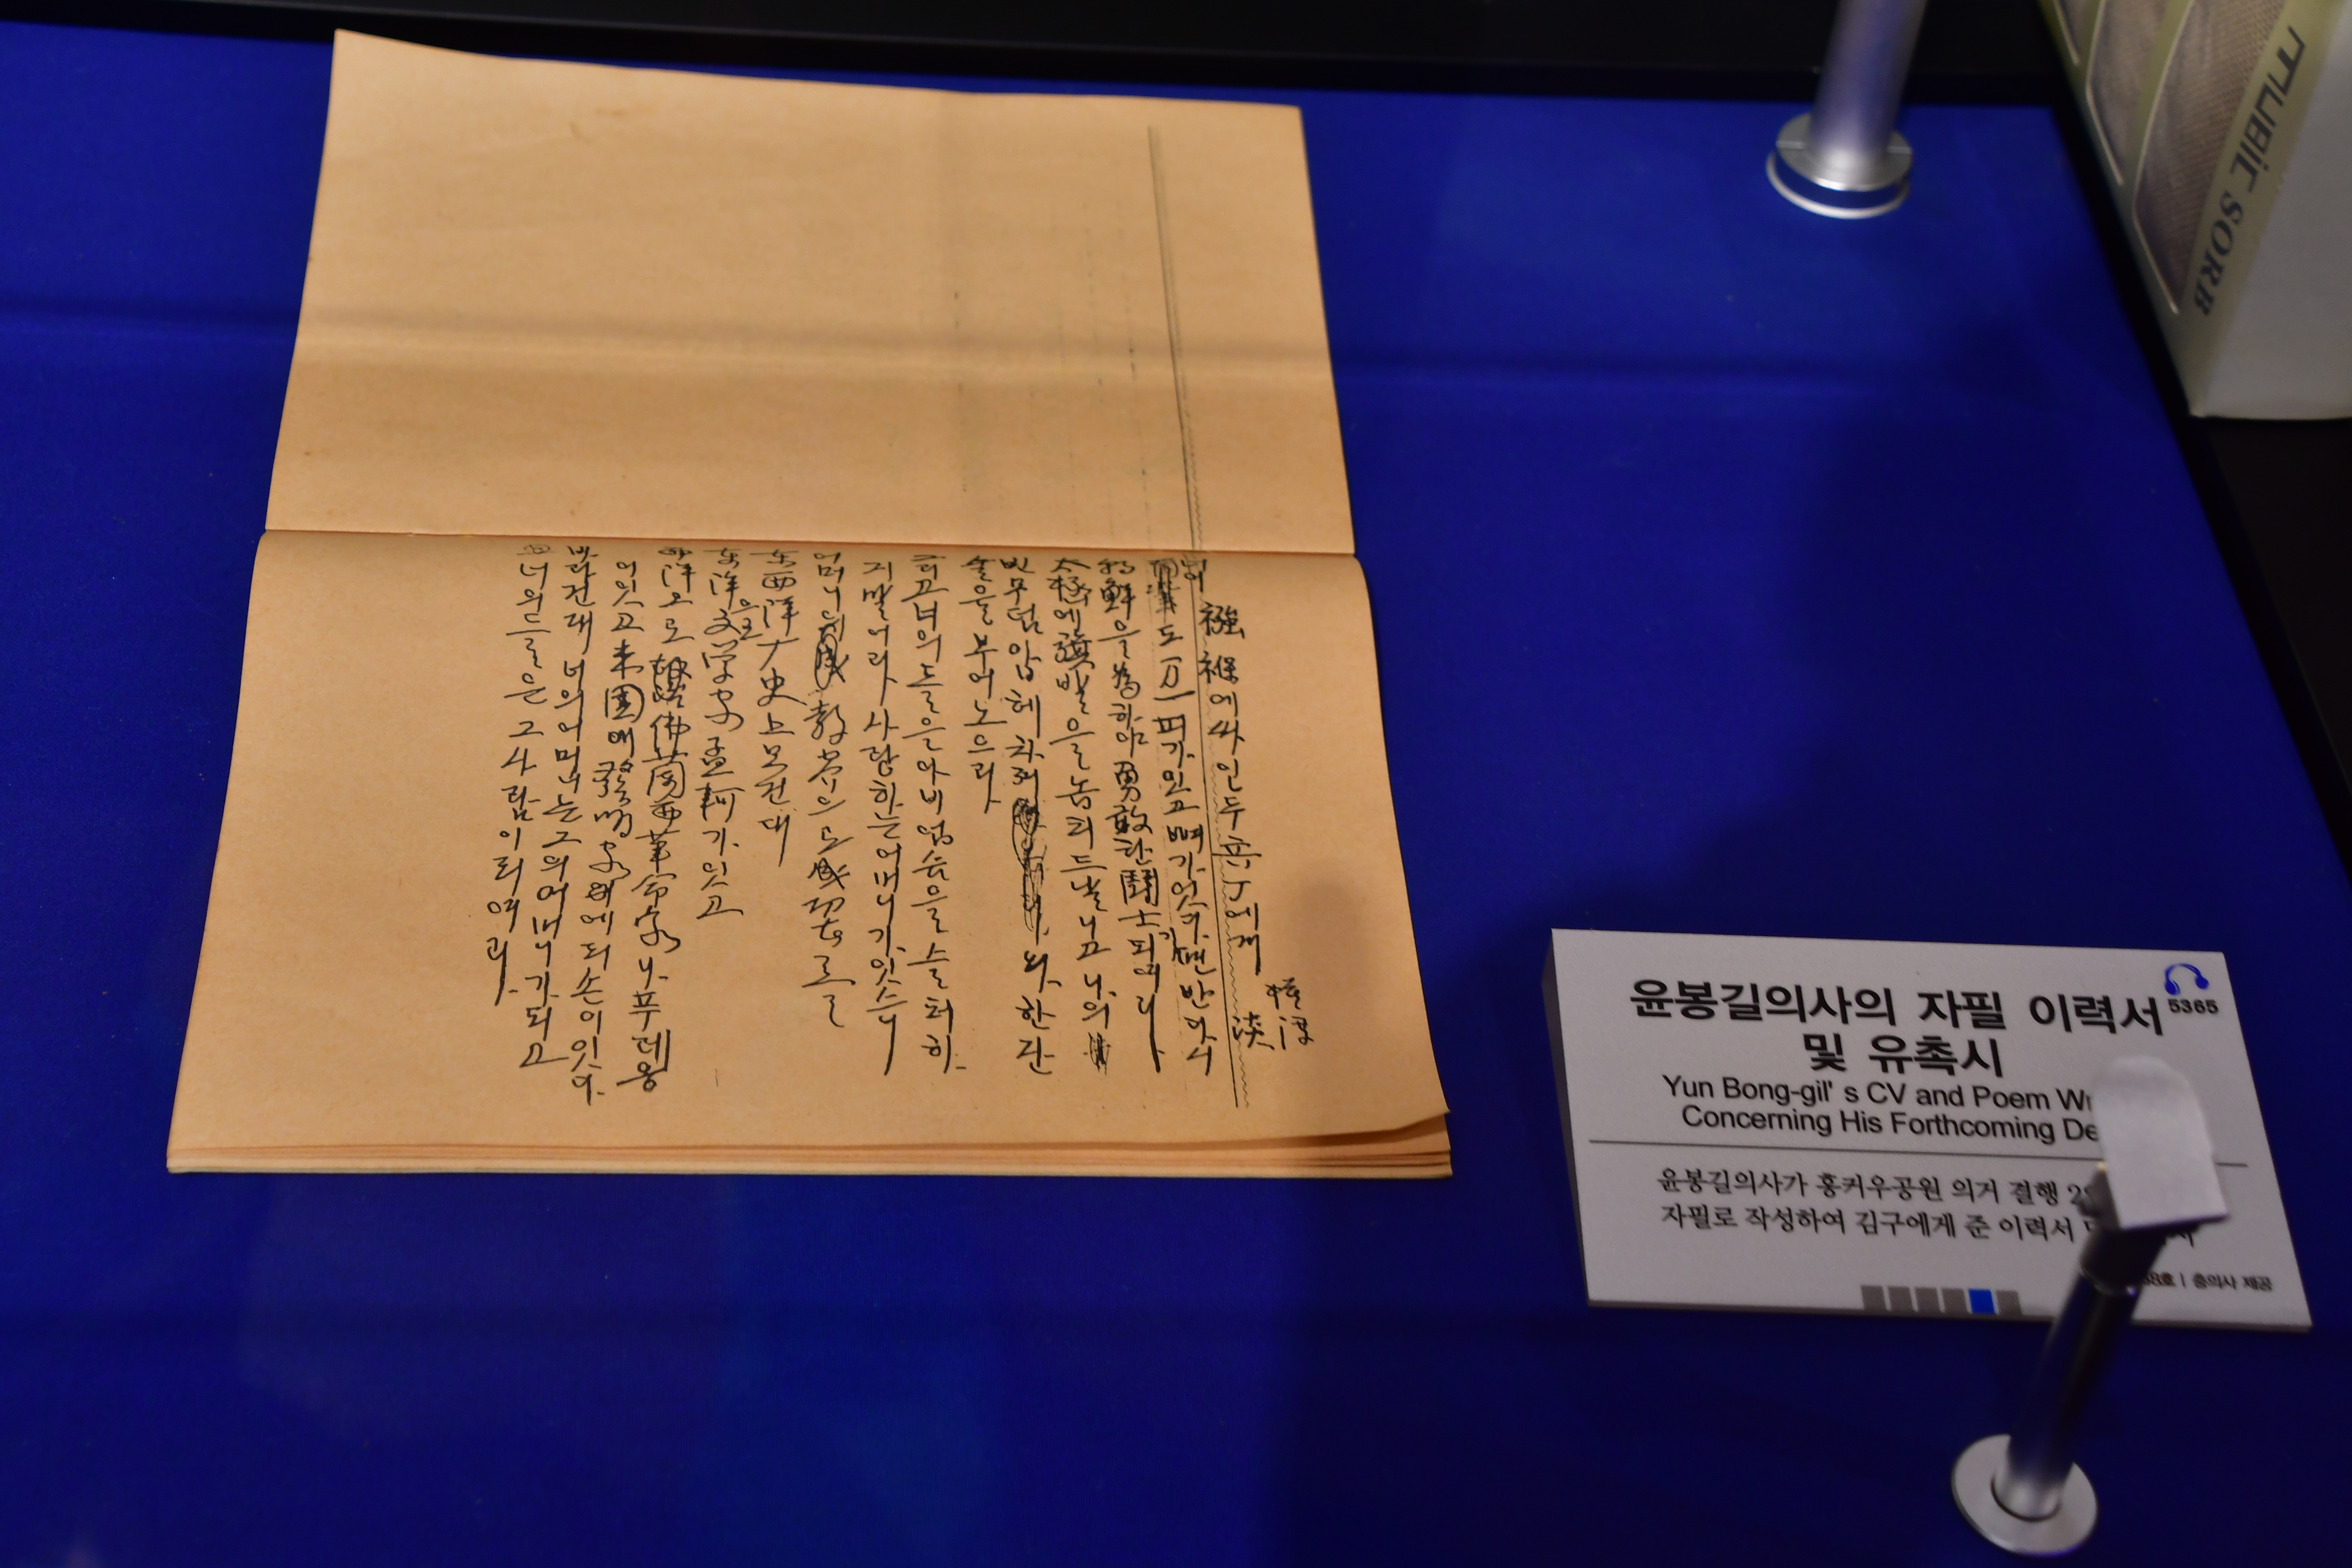 襁褓에싸인두兵丁에게
模淳
淡
도万一피가잇고뼈가잇다면반다시
朝鮮을爲하야勇敢한鬪士가되여라
太極에旗발을놉피드날니고나의
빈무덤압헤차져와한잔
술을부어노으라
그리고너의들은아비업슴을슬퍼하
지말어라사랑하는어머니가잇스니
어머니의敎育으로成功者를
東西洋史上보건대
東洋으로文学家孟軻가잇고
西洋으로佛蘭西革命家나푸레옹
이잇고米国에發明家에듸손이잇다.
바라건대너의어머니는그의어머니가되고
너의들은그사람이되여라.
윤봉길의사의 자필 이력서
및 유촉시
5365
Yun Bong-gil' s CV and Poem
Concerning His Forthcoming
윤봉길의사가 홍커우공원 의거 결행
자필로 작성하여 김구에게 준 이력서
호 | 충의사 제공
SORB